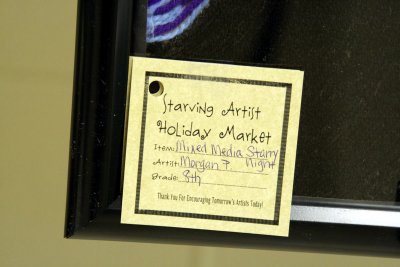 Starving Artist
Holiday Market
Item: Mixed Media Starry
Night
Artist: Morgan P.
Grade: 8th
Thank You For Encouraging Tomorrow's Artists Today!